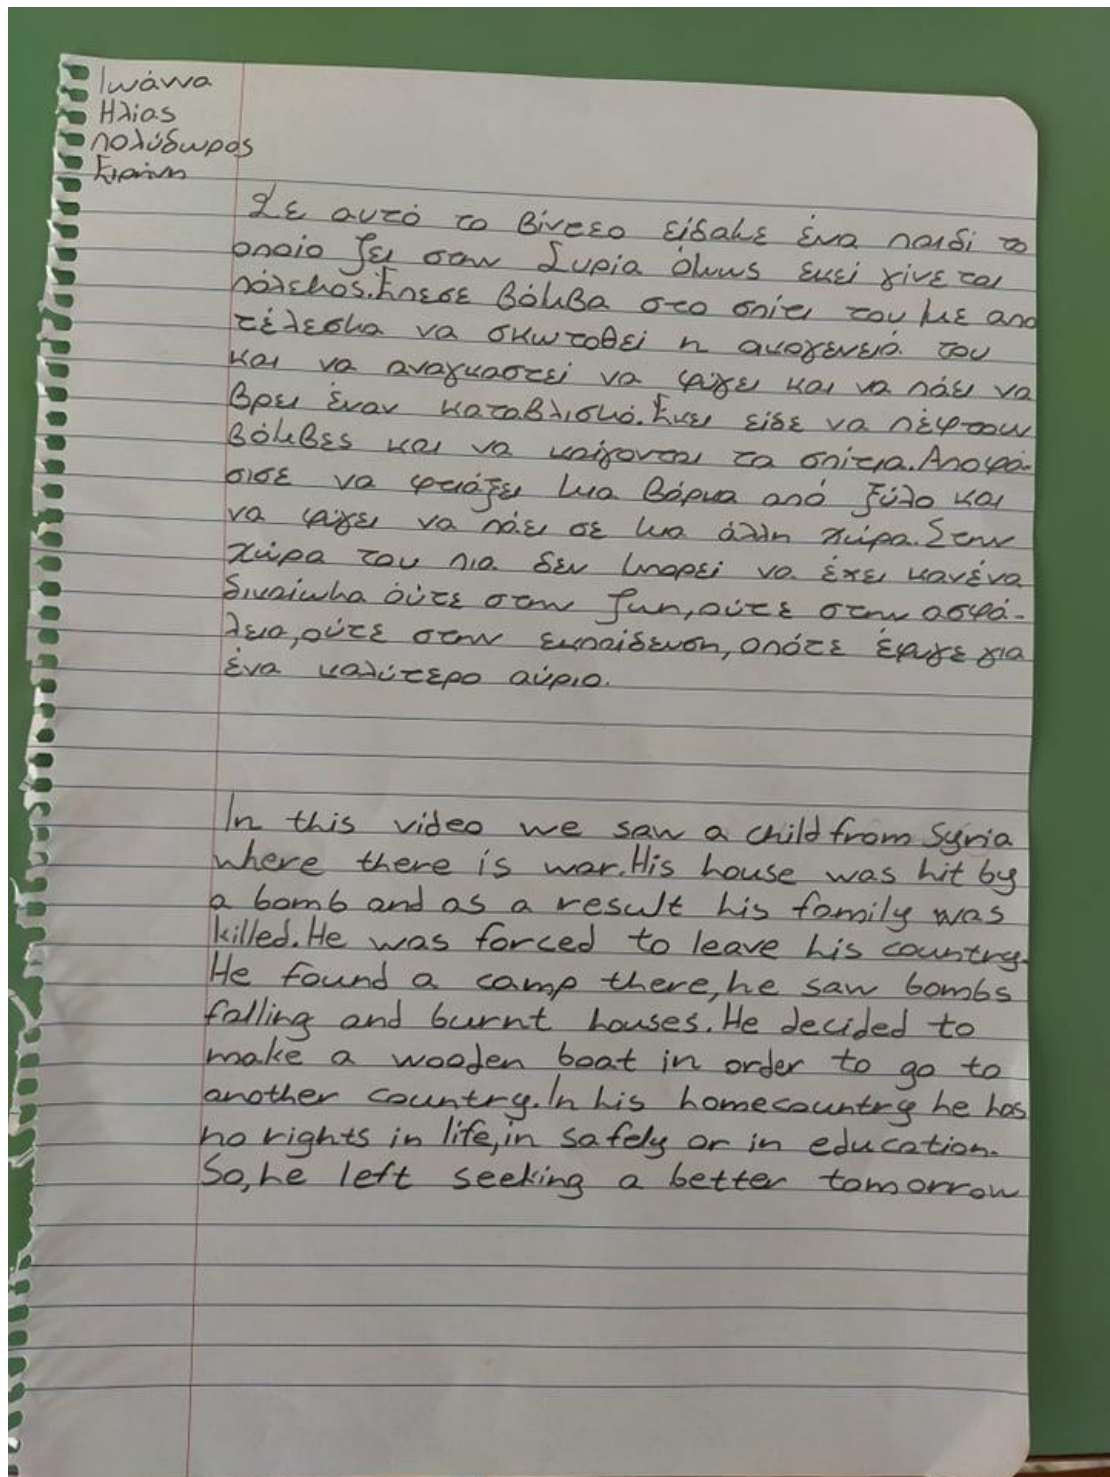 Ιωάννα
Ηλίας
Πολύδωρος
Ειρήνη
Σε αυτό το βίντεο είδαμε ένα παιδί το
οποίο ζει στην Συρία όμως εκεί γίνεται
πόλεμος. Έπεσε βόμβα στο σπίτι του με απο
τέλεσμα να σκωτοθεί η οικογενειά του
και να αναγκαστεί να φύγει και να πάει να
βρει έναν καταβλισμό. Εκει είδε να πέφτουν
βόμβες και να καίγονται τα σπίτια. Αποφά-
σισε να φτιάξει μια βάρκα από ξύλο και
να φύγει να πάει σε μια άλλη χώρα. Στην
χώρα του πια δεν μπορεί να έχει κανένα
δικαίωμα ούτε στην ζωη, ούτε στην ασφά-
λεια, ούτε στην εκπαίδευση, οπότε έφυγε για
ένα καλύτερο αύριο.
In this video we saw a child from Syria
where there is war. His house was hit by
a bomb and as a result his family was
killed. He was forced to leave his country.
He found a camp there, he saw bombs
falling and burnt houses. He decided to
make a wooden boat in order to go to
another country. In his homecountry he has
no rights in life, in safely or in education.
So, he left seeking a better tomorrow